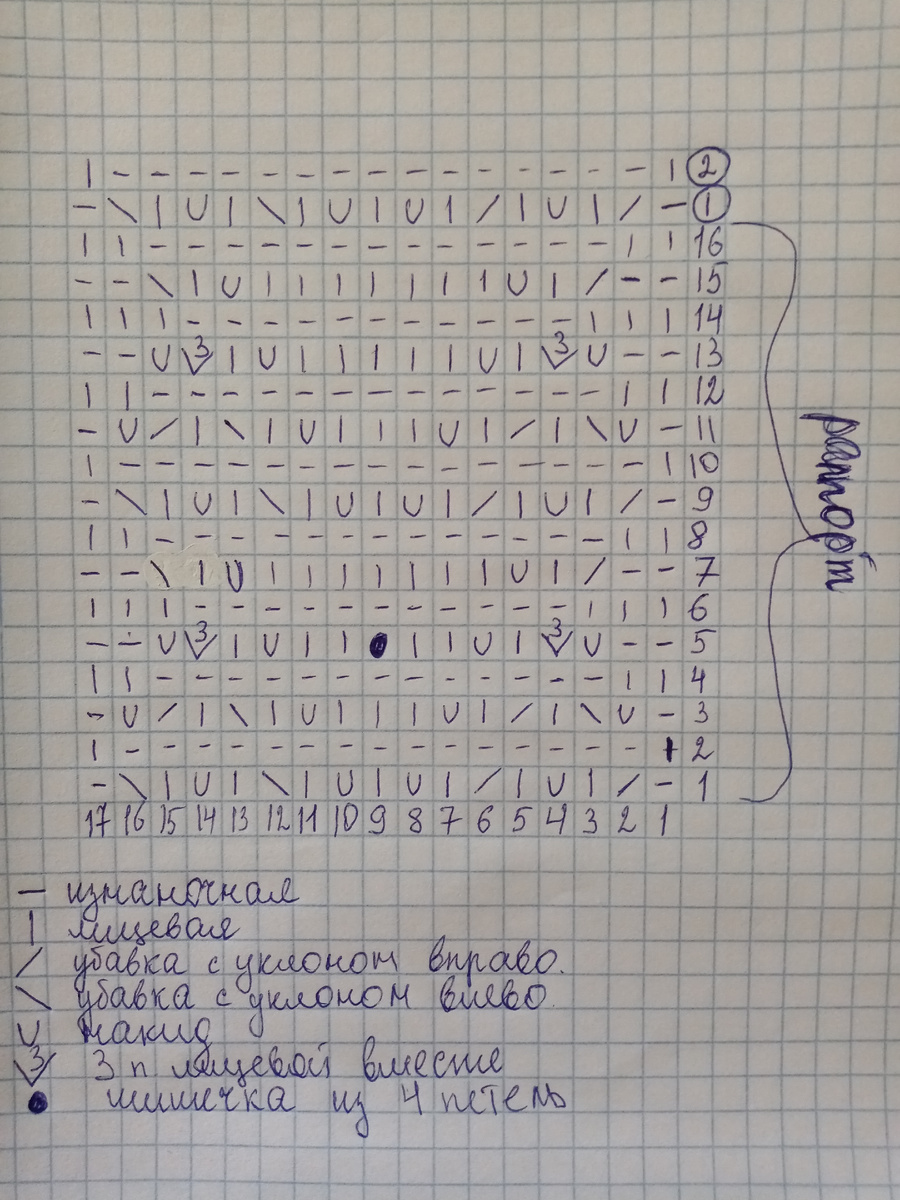 | - - - - - - - - - - - - - - - | 2
- \ | U | \ | U | U | / | U | / - 1
| | - - - - - - - - - - - - - | | 16
- - \ | U | | | | | | | U | / - - 15
| | | - - - - - - - - - - - | | | 14
- - U 3 | U | | | | | U | 3 U - - 13
| | - - - - - - - - - - - - - | | 12
- U / | \ | U | | | U | / | \ U - 11
| - - - - - - - - - - - - - - - | 10
- \ | U | \ | U | U | / | U | / - 9
| | - - - - - - - - - - - - - | | 8
- - \ | U | | | | | | | U | / - - 7
| | | - - - - - - - - - - - | | | 6
- - U 3 | U | | ● | | U | 3 U - - 5
| | - - - - - - - - - - - - - | | 4
- U / | \ | U | | | U | / | \ U - 3
| - - - - - - - - - - - - - - - | 2
- \ | U | \ | U | U | / | U | / - 1
17 16 15 14 13 12 11 10 9 8 7 6 5 4 3 2 1
раппорт
- изнаночная
| лицевая
/ убавка с уклоном вправо.
\ убавка с уклоном влево.
U накид
3 3 п лицевой вместе
● шишечка из 4 петель